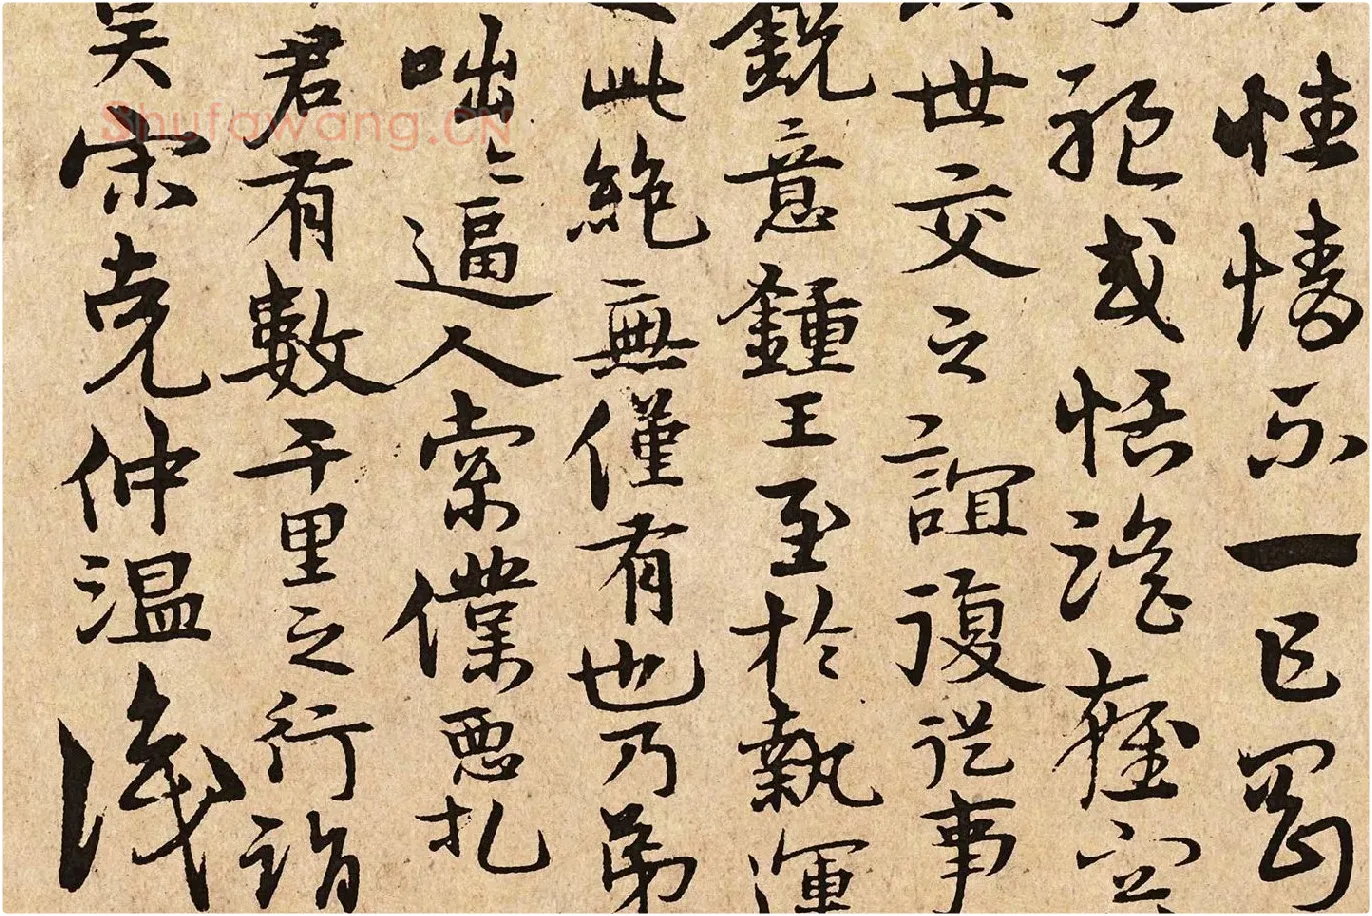 性情不一已
或悟
世交之誼復從事
銳意鍾王至於執運
此絕無僅有也乃弟
咄〻逼人索僕惡札
君有數千里之行詣
吳宋克仲温識
Shufawang.CN